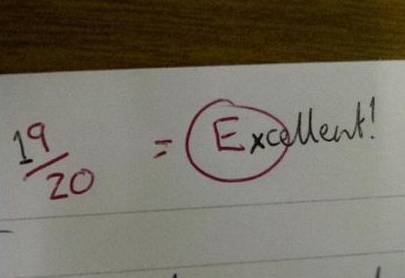 19/20 = Excellent!